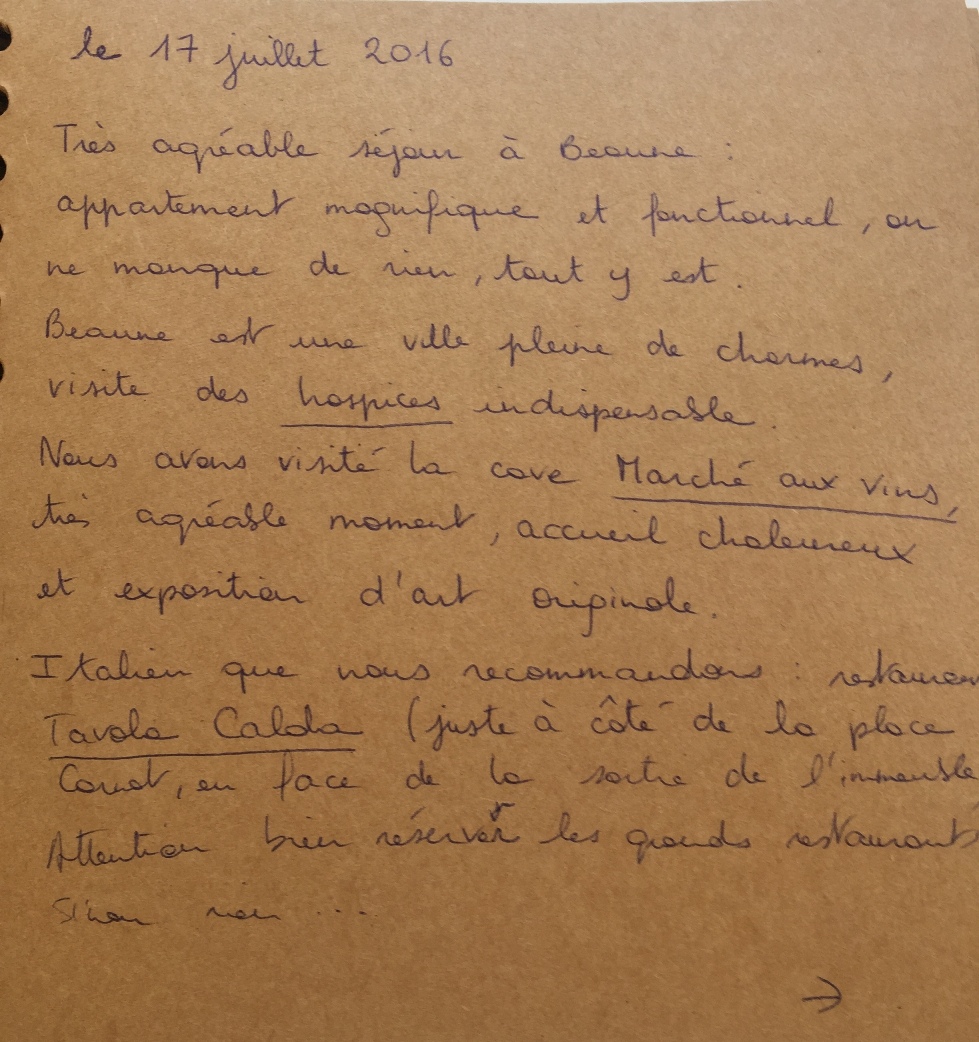 le 17 juillet 2016
Très agréable séjour à Beaune :
appartement magnifique et fonctionnel, on
ne manque de rien, tout y est.
Beaune est une ville pleine de charmes,
visite des hospices indispensable.
Nous avons visité la cave Marché aux vins,
très agréable moment, accueil chaleureux
et exposition d'art originale.
Italien que nous recommandons : restauran
Tavola Calda (juste à côté de la place
Carnot, en face de la sortie de l'immeuble
Attention bien réserver les grands restaurants
Sinon rien ...
→